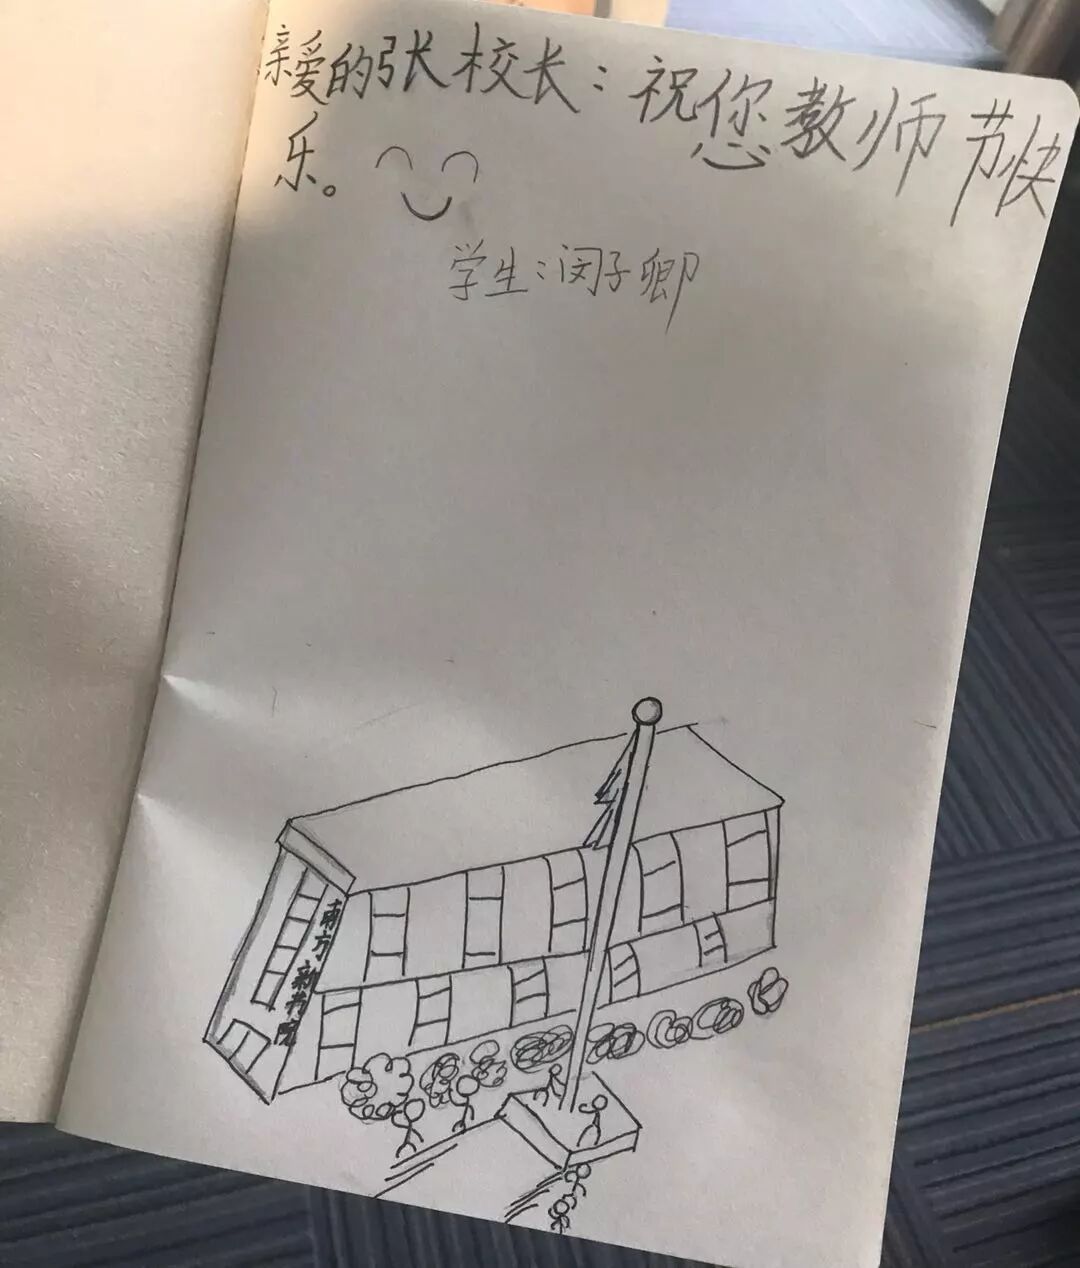 亲爱的张校长：祝您教师节快
乐。
学生：闵子卿
南方新书院